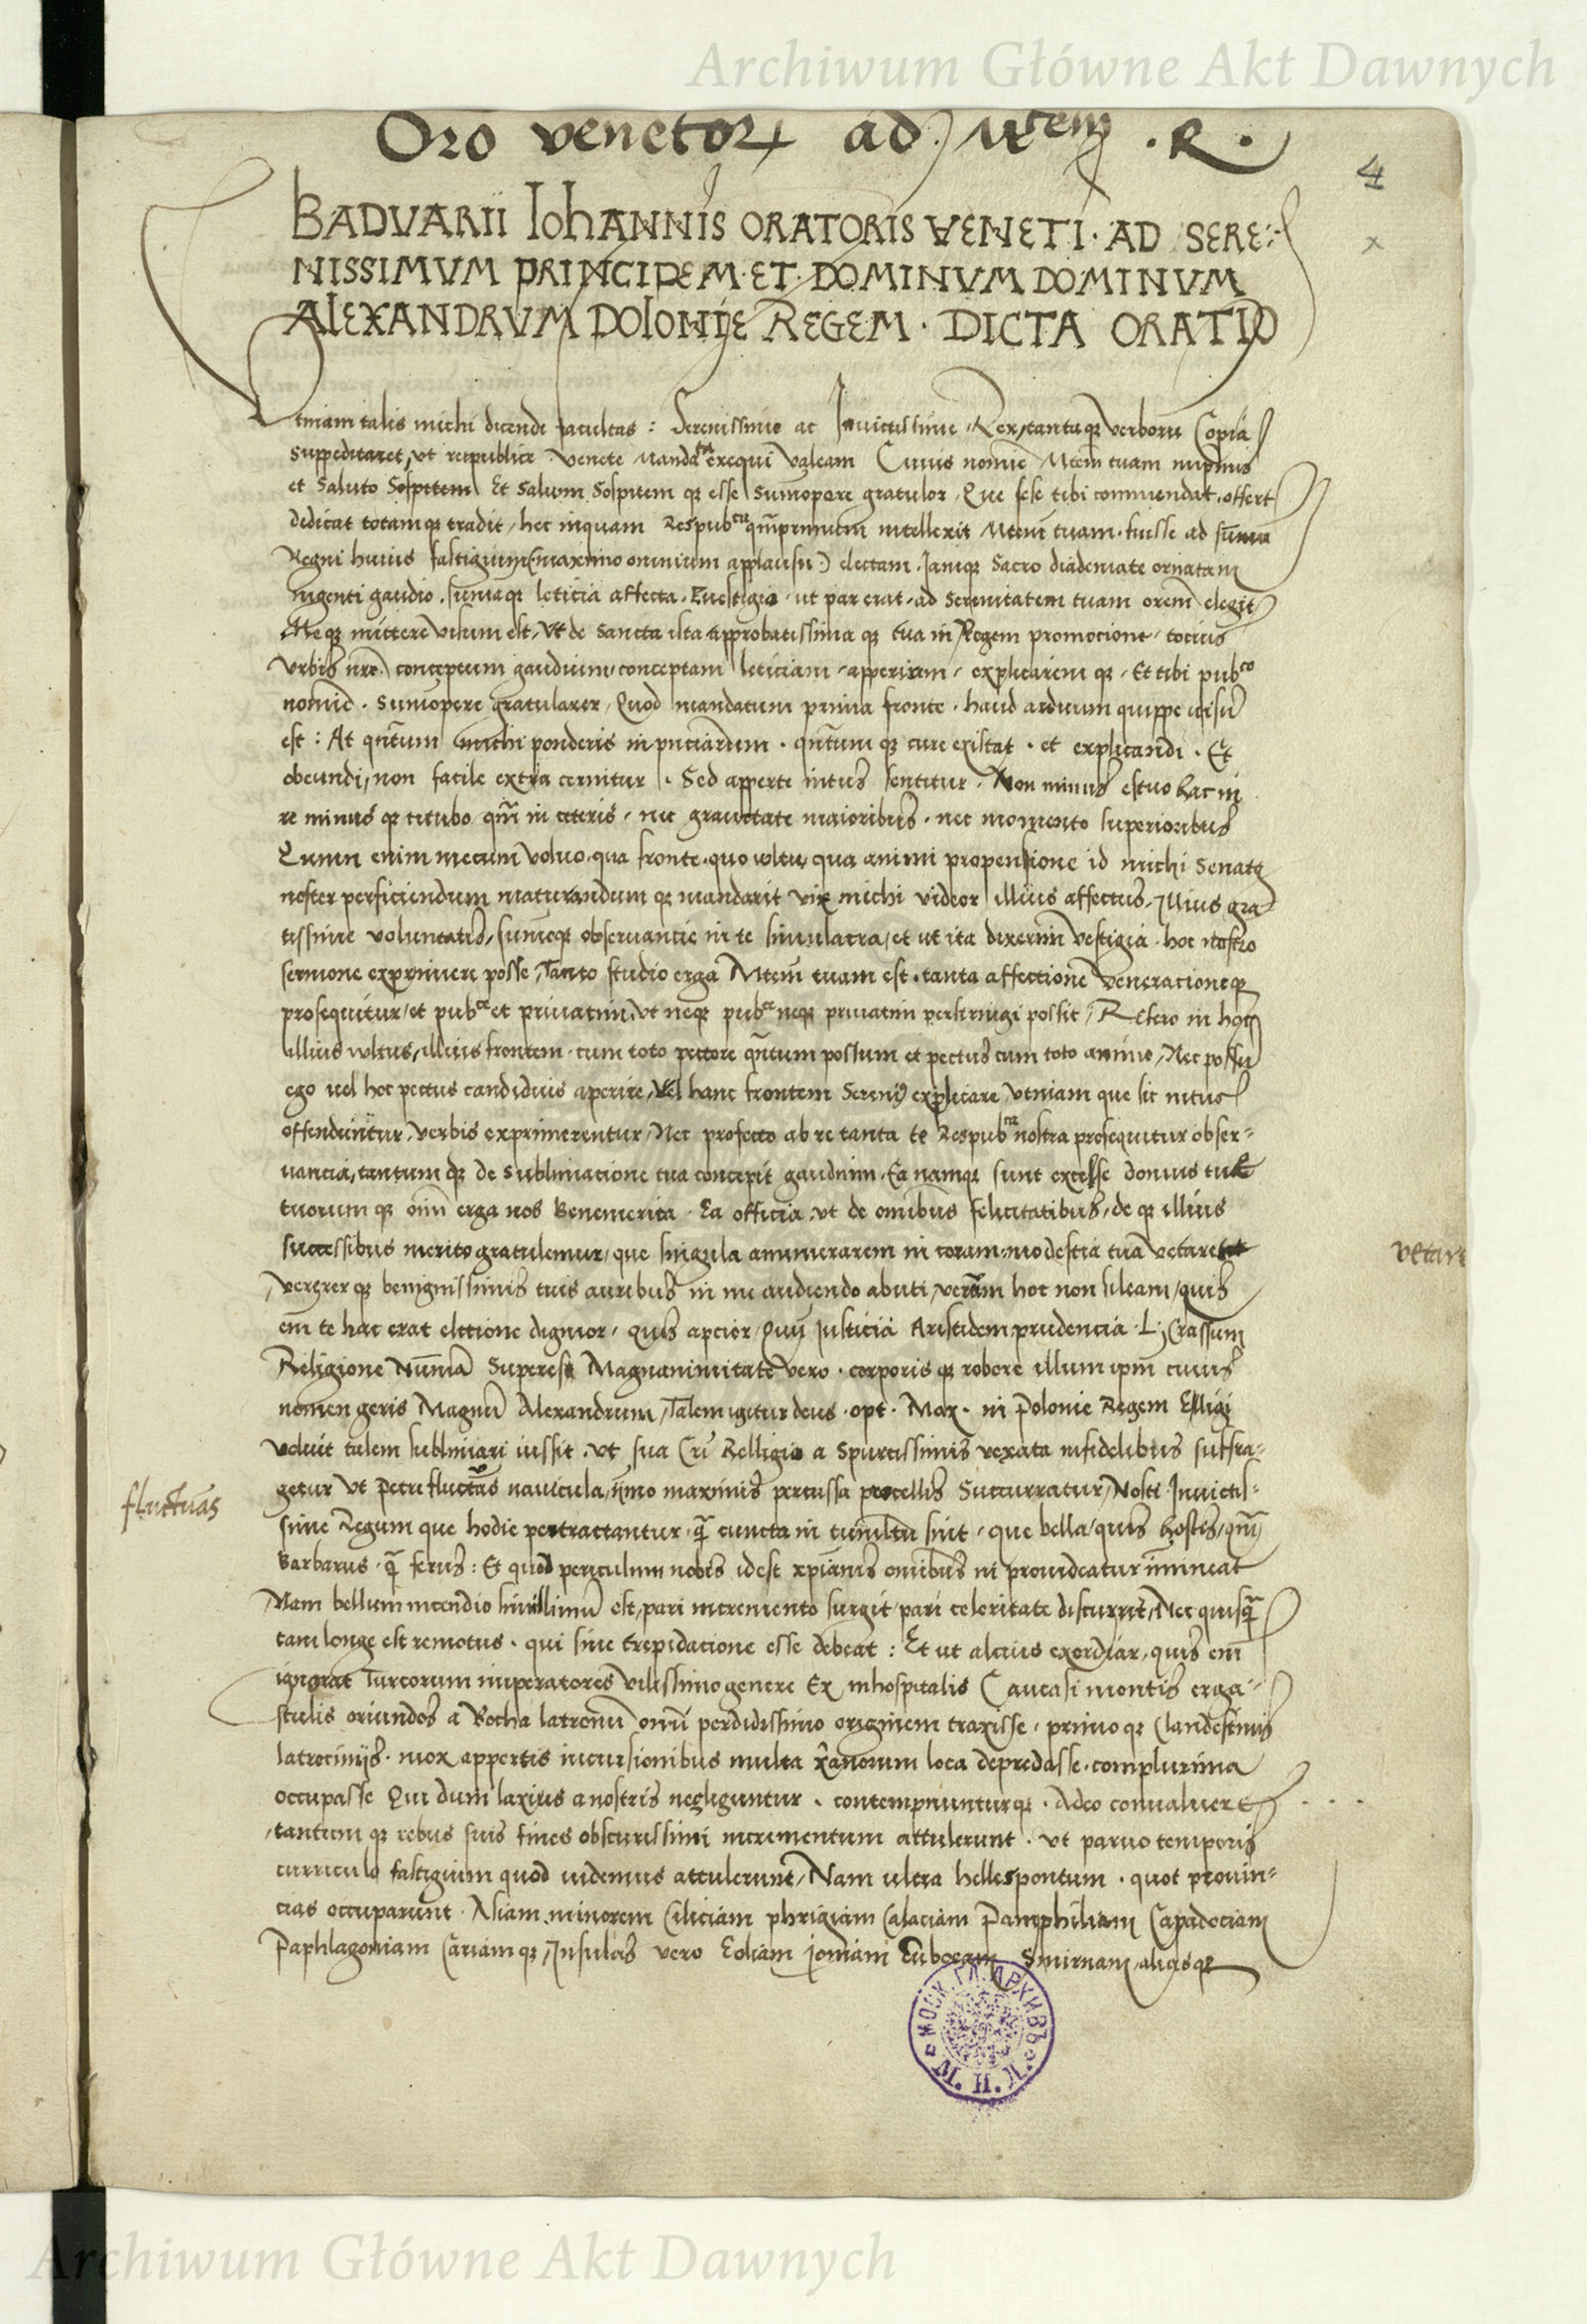 Archiwum Główne Akt Dawnych
Oro venetorꝝ ad Mtem .R.
4
x
BADVARII IohANNIS ORATORIS VENETI · AD SERE=
NISSIMVM PRINCIPEM · ET · DOMINVM DOMINVM
ALEXANDRVM POLONIJE REGEM · DICTA ORATIO
Vtniam talis michi dicendi facultas : Serenissime ac Invictissime Rex, tantaqꝫ verborū Copia
suppeditaret, vt reipublice Venete mandata exequi valeam Cuius nomīe Mtem tuam
et saluto Sospitem Et saluum Sospitem qꝫ esse sumopere gratulor, Que sese tibi commendat, offert
dedicat totamqꝫ tradit, hec inquam Respubca qmprimum intellexit Mtem tuam fuisse ad sūmū
Regni huius fastigium (maximo omnium applausu) electam Jamqꝫ Sacro diademate ornatam
ingenti gaudio, sumaqꝫ leticia affecta Evestigio ut par erat ad Serenitatem tuam orem elegit
Meqꝫ mittere visum est, Vt de sancta ista approbatissima qꝫ tua in Regem promocione, tocius
Vrbis nrē conceptum gaudium, conceptam leticiam, apperirem, explicarem qꝫ, Et tibi pubco
nomīe sumopere gratularer, Quod mandatum prima fronte haud arduum quippe visū
est : At qntum michi ponderis qntum qꝫ cure existat et explicandi Et
obeundi, non facile extra cernitur Sed apperte intus sentitur Non minus estuo hac in
re minus qꝫ titubo qm in ceteris, nec gravitate maioribus nec momento superioribus
Qumn enim mecum voluo, qua fronte, quo vultu, qua animi propensione id michi Senatꝫ
noster perficiendum maturandum qꝫ mandarit vix michi videor illius affectus, Illius gra=
tissime voluntatis, sumeqꝫ observancie in te simulacra, et ut ita dixerim vestigia hoc nostro
sermone exprimere posse, Tanto studio erga Mtem tuam est tanta affectione veneracioneqꝫ
prosequitur, et pubce et privatim, Vt neqꝫ pubce neqꝫ privatim possit, Refero in hoc
illius vultus, illius frontem cum toto pectore qntum possum et pectus cum toto animo, Nec possū
ego vel hoc pectus candidius aperire, Vel hanc frontem Sereni explicare, Vtniam que sic intus
offenduntur, verbis exprimerentur, Nec profecto ab re tanta te Respubca nostra prosequitur obser=
vancia, tantum qꝫ de sublimacione tua concepit gaudium, Ea namqꝫ sunt excelse domus tue
tuorum qꝫ oīm erga nos Benemerita Ea officia, vt de omībus felicitatibus, de qꝫ illius
successibus merito gratulemur, que singula annumerarem ni coram modestia tua vetaret
vetare
Vererer qꝫ benignissimis tuis auribus in me audiendo abuti, verum hoc non sileam, quis
em te hac erat electione dignior, quis apcior, Qui Justicia Aristidem prudencia L. Crassum
Religione Numā Superes Magnanimitate vero corporis qꝫ robore illum ipm cuius
nomen geris Magnū Alexandrum, Talem igitur deus opt. Max. in Polonie Regem Elligi
voluit talem sublimari iussit, vt sua Cri Relligio a spurcissimis vexata infidelibus suffra=
fluctuas
getur Vt Petri fluctuās navicula, īmo maximis percussa procellis Succurratur, Nosti Invictis=
sime Regum que hodie pertractantur, qꝫ cuncta in tumultu sint, que bella, quis hostis, qm
Barbarus, qꝫ ferus : Et quod periculum nobis idest xpianis omībus ni provideatur īmineat
Nam bellum incendio simillimū est, pari incremento surgit, pari celeritate discurrit, Nec quisqꝫ
tam longe est remotus qui sine trepidacione esse debeat : Et ut alcius exordiar, quis em
ignorat Turcorum imperatores vilissimo genere Ex inhospitalis Caucasi montis erga=
stulis oriundos a Rocha latronū omī perdidissimo originem traxisse, primo qꝫ Clandestinis
latrocinijs mox appertis incursionibus multa xanorum loca depredasse, complurima
occupasse Qui dum laxius a nostris negliguntur contempnunturqꝫ Adeo convaluere
tantum qꝫ rebus suis fines obscurissimi incrementum attulerunt, vt parvo temporis
curriculo fastigium quod videmus attulerunt, Nam ultra hellespontum quot provin=
cias occuparunt Asiam minorem Ciliciam phrigiam Galaciam Pamphiliam Capadociam
Paphlagoniam Cariam qꝫ, Insulas vero Eoliam Ioniam Euboeam Smirnam aliasqꝫ
МОСК. ГЛ. АРХИВЪ М. И. Д.
Archiwum Główne Akt Dawnych